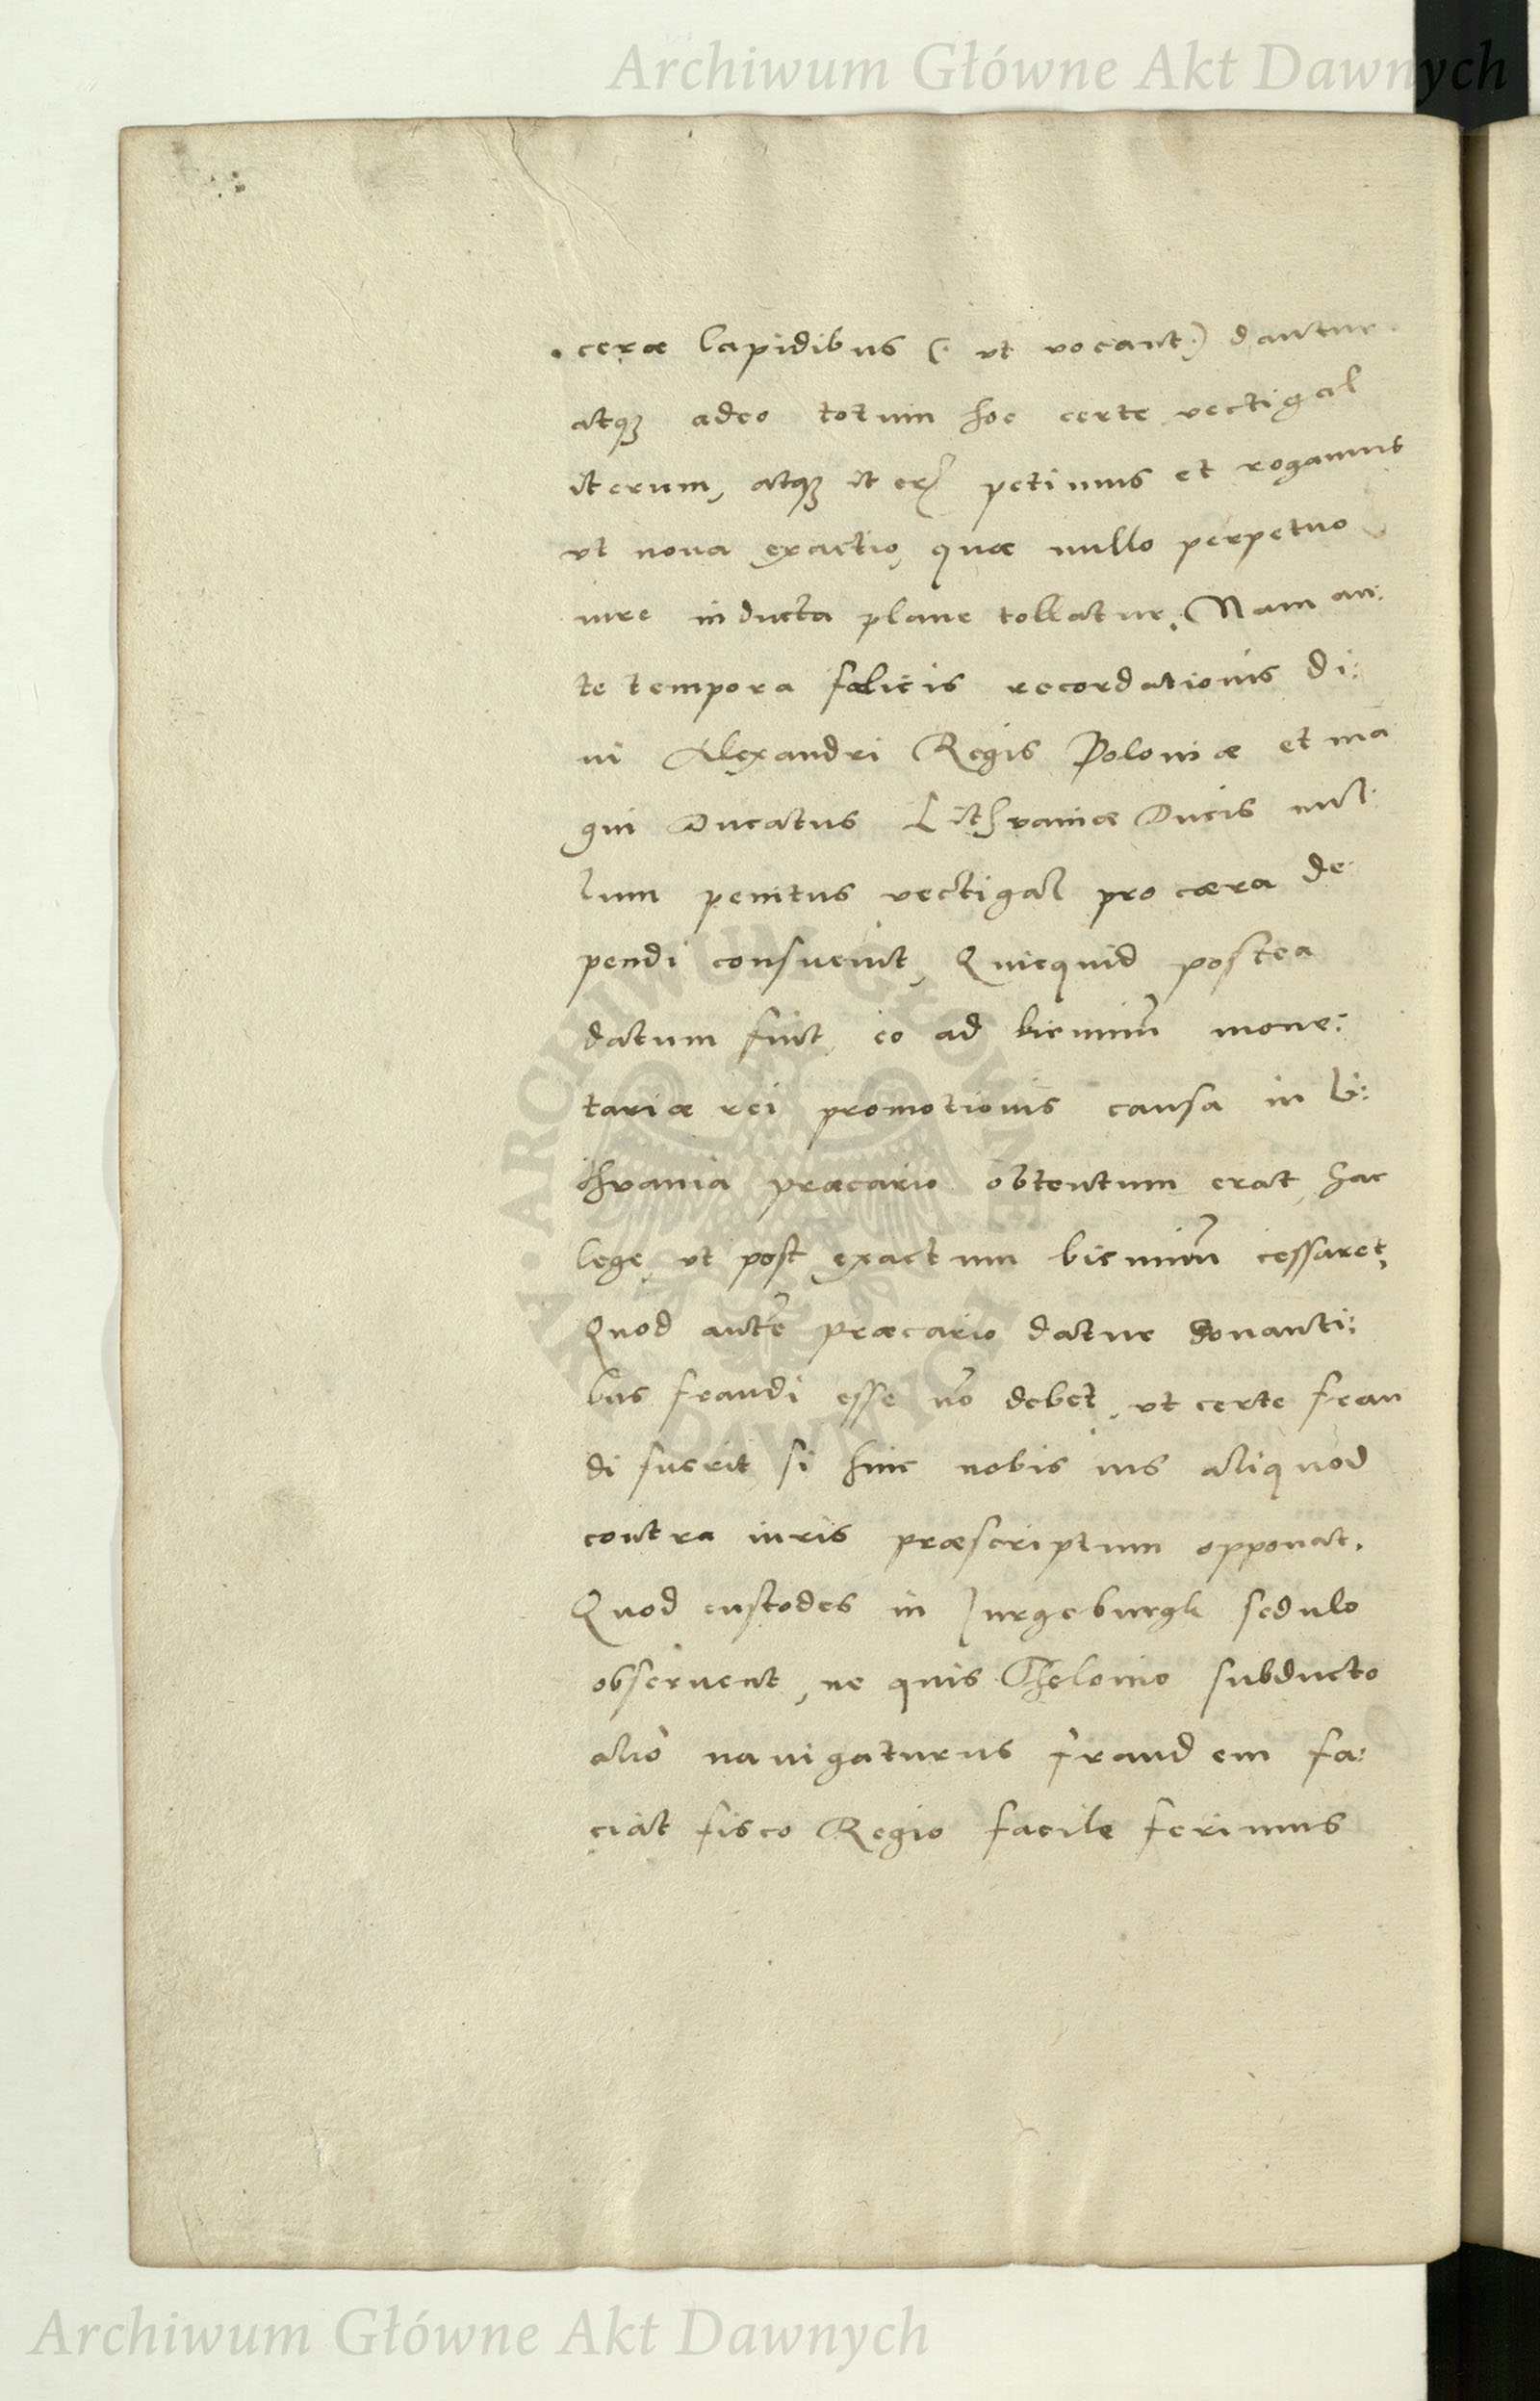 Archiwum Główne Akt Dawnych
ceræ lapidibus (: vt vocant:) dantur
atq₃ adeo totum hoc certe vectigal
iterum, atq₃ iterꝝ petimus et rogamus
vt noua exactio, quæ nullo perpetuo
iure inducta plane tollatur. Nam an:
te tempora fœlicis recordationis di:
ui Alexandri Regis Poloniæ et ma
gni Ducatus Lithvaniæ Ducis nul:
lum penitus vectigal pro cæra de
pendi consueuit, Quicquid postea
datum fuit, eo ad bienniũ mone:
tariæ rei promotionis causa in Li:
thvania præcario obtentum erat, hac
lege, vt post exactum bienniũ cessaret,
Quod autẽ præcario datur donanti:
bus fraudi esse nõ debet, vt certe frau
di fuerit, si hinc nobis ius aliquod
contra iuris præscriptum opponat.
Quod custodes in Jurgeburgk sedulo
obseruent, ne quis Theloneo subducto
alio nauigaturus fraudem fa:
ciat fisco Regio facile ferimus
ARCHIWUM GŁÓWNE
AKT DAWNYCH
Archiwum Główne Akt Dawnych